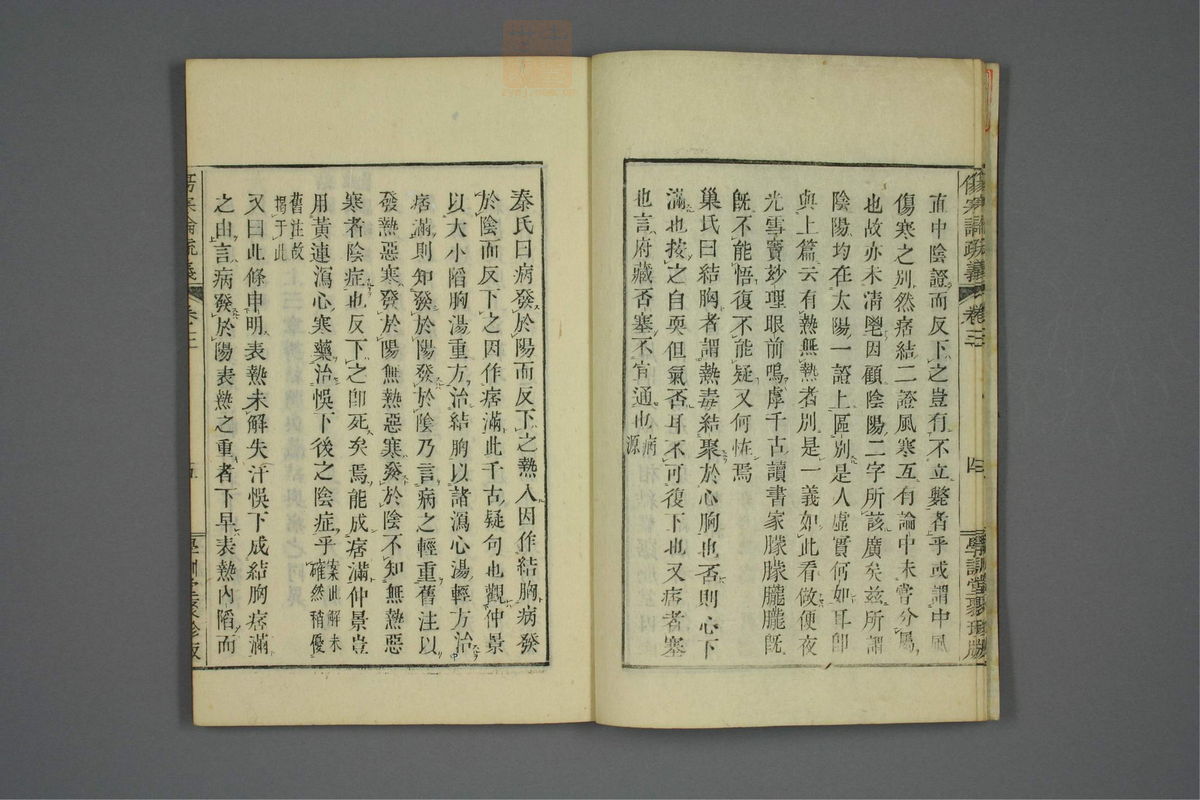 傷寒論疏義 卷三 四 學訓堂聚珍版
直中陰證而反下之豈有不立斃者乎或謂中風
傷寒之別然痞結二證風寒互有論中未嘗分屬
也故亦未清鬯因顧陰陽二字所該廣矣茲所謂
陰陽均在太陽一證上區別是人虛實何如耳卽
與上篇云有熱無熱者別是一義如此看做便夜
光雪竇妙理眼前嗚虖千古讀書家朦朦朧朧旣
旣不能悟復不能疑又何怪焉
巢氏曰結胸者謂熱毒結聚於心胸也否則心下
滿也按之自耎但氣否耳不可復下也又痞者塞
也言府藏否塞不宜通也病源
秦氏曰病發於陽而反下之熱入因作結胸病發
於陰而反下之因作痞滿此千古疑句也觀仲景
以大小陷胸湯重方治結胸以諸瀉心湯輕方治
痞滿則知發於陽發於陰乃言病之輕重舊注以
發熱惡寒發於陽無熱惡寒發於陰不知無熱惡
寒者陰症也反下之卽死矣焉能成痞滿仲景豈
用黃連瀉心寒藥治悞下後之陰症乎案此解未確然稍優
舊注故揭于此
又曰此條申明表熱未解失汗悞下成結胸痞滿
之由言病發於陽表熱之重者下早表熱內陷而